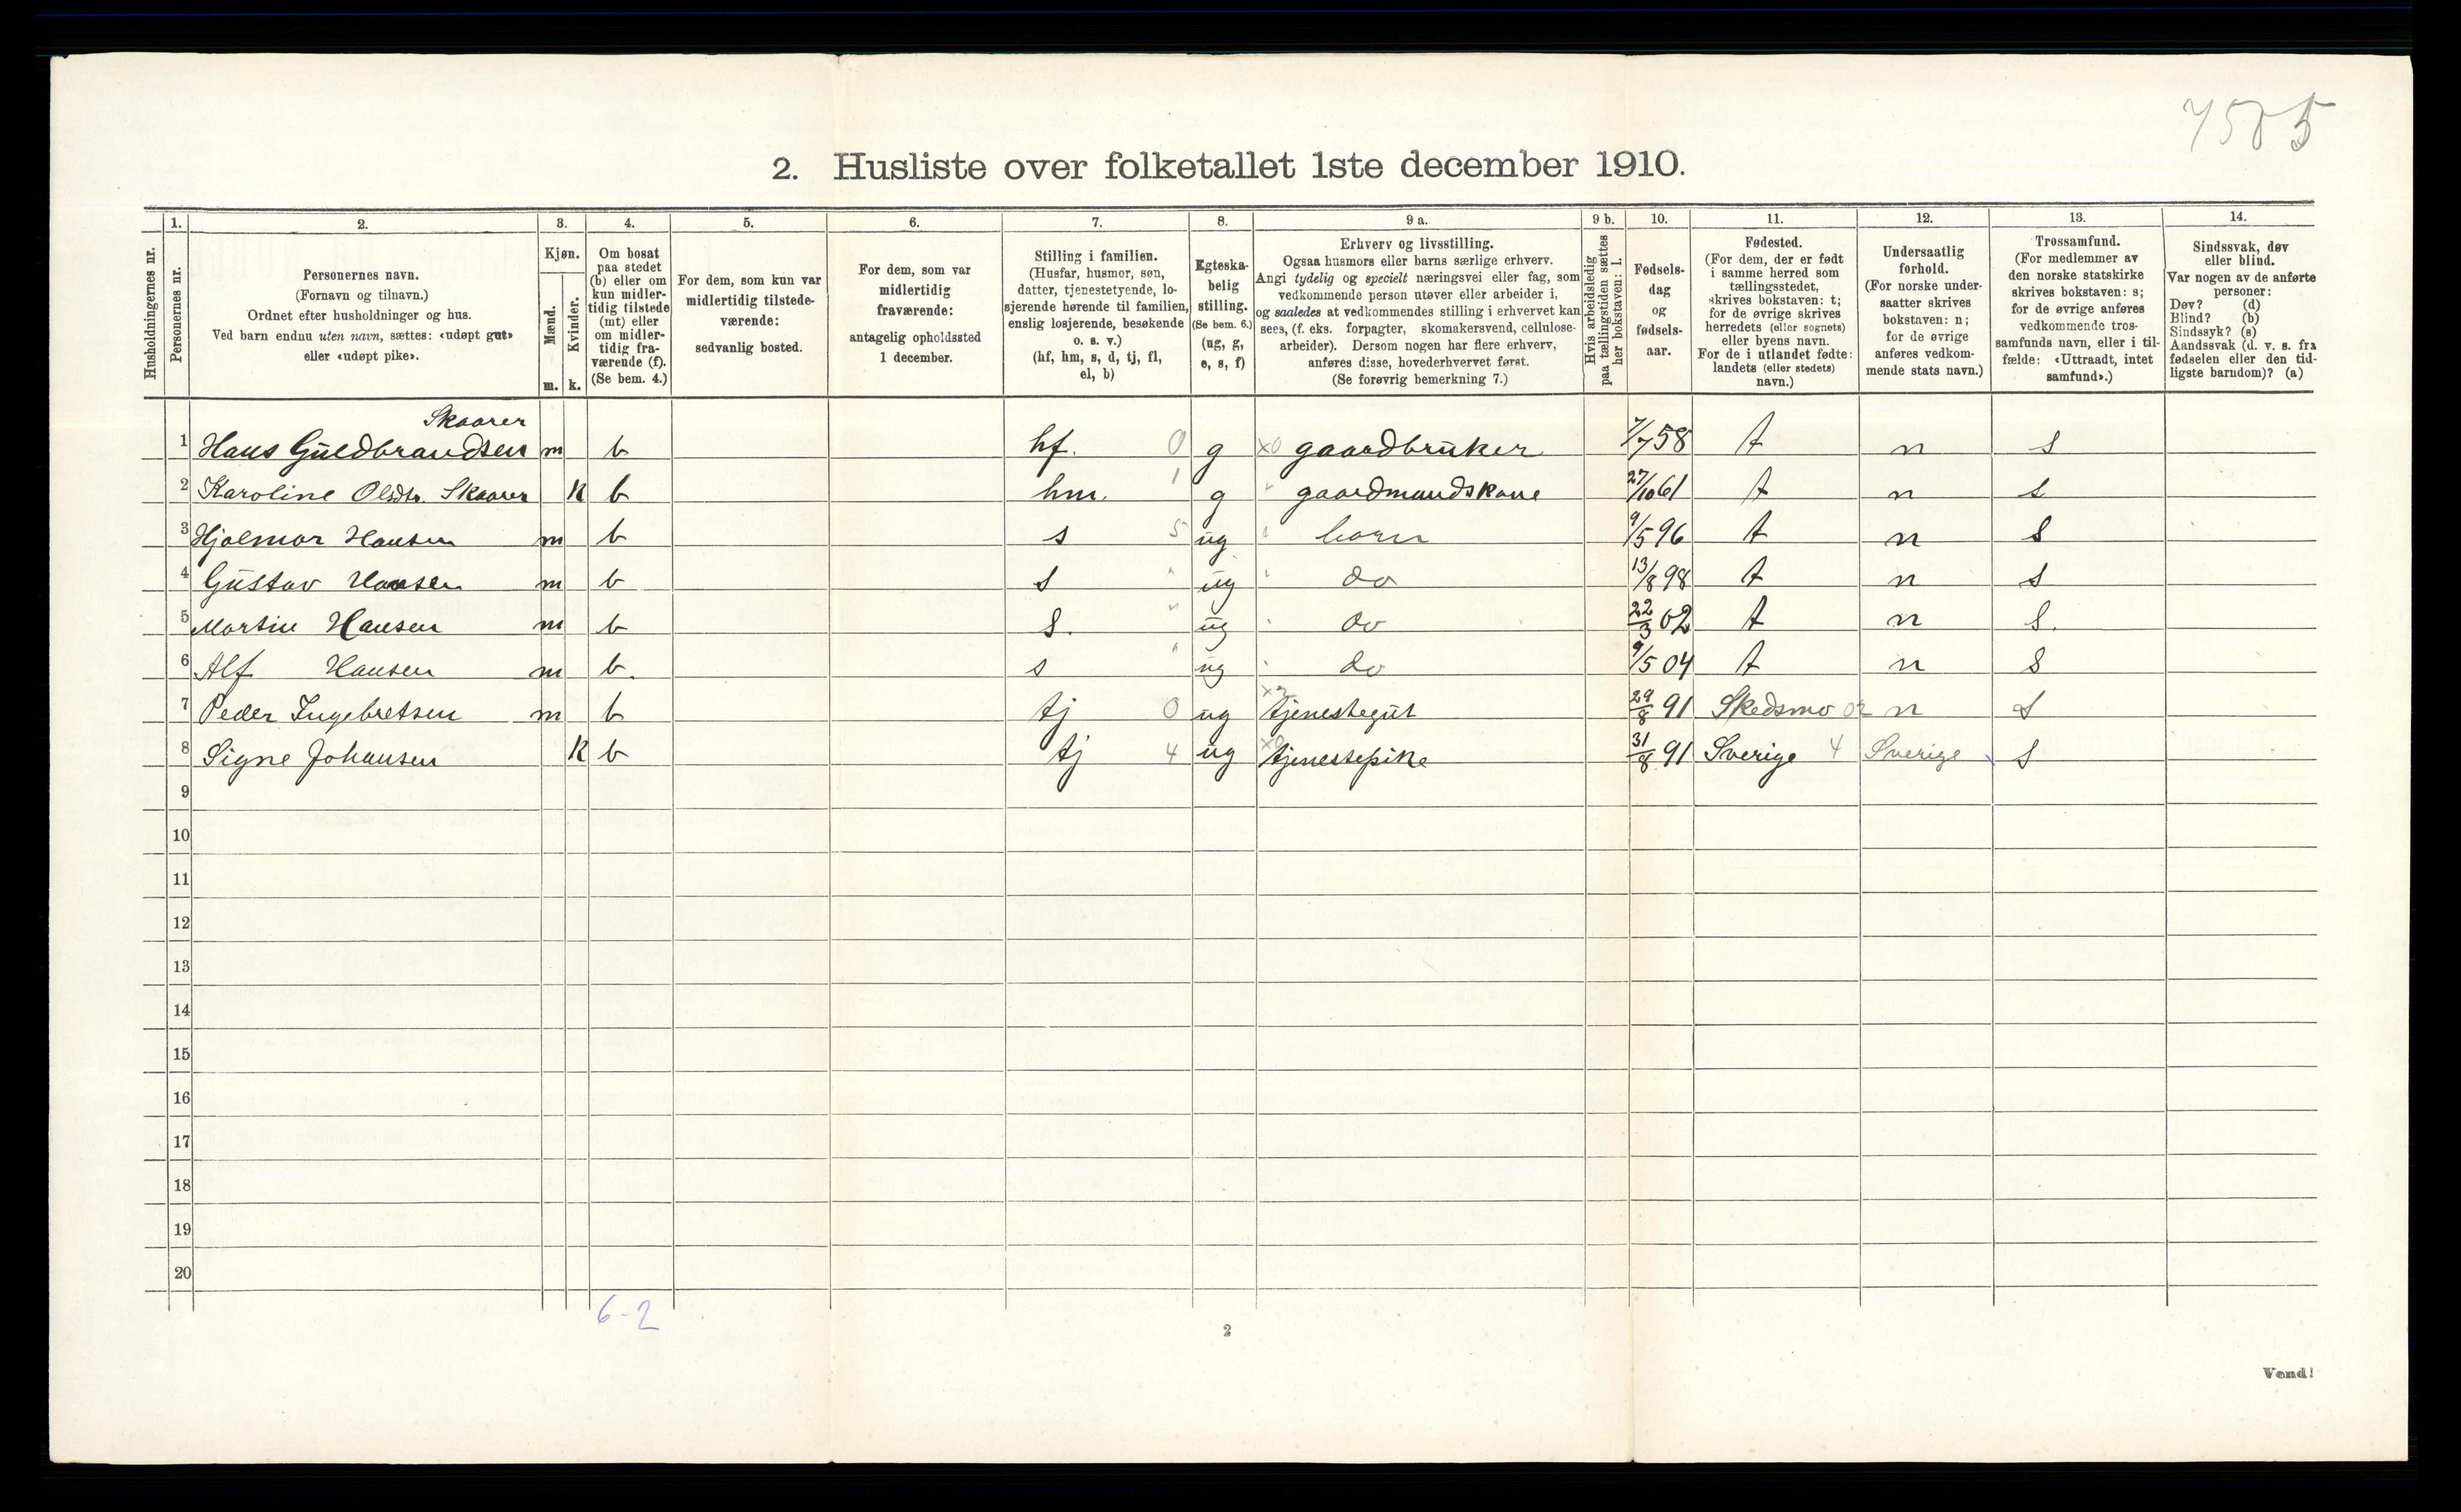 7585
2. Husliste over folketallet 1ste december 1910.
Husholdningernes nr.
1.
Personernes nr.
2.
Personernes navn.
(Fornavn og tilnavn.)
Ordnet efter husholdninger og hus.
Ved barn endnu uten navn, sættes: «udøpt gut»
eller «udøpt pike».
3.
Kjøn.
Mænd.
m.
Kvinder.
k.
4.
Om bosat
paa stedet
(b) eller om
kun midler-
tidig tilstede
(mt) eller
om midler-
tidig fra-
værende (f).
(Se bem. 4.)
5.
For dem, som kun var
midlertidig tilstede-
værende:
sedvanlig bosted.
6.
For dem, som var
midlertidig
fraværende:
antagelig opholdssted
1 december.
7.
Stilling i familien.
(Husfar, husmor, søn,
datter, tjenestetyende, lo-
sjerende hørende til familien,
enslig losjerende, besøkende
o. s. v.)
(hf, hm, s, d, tj, fl,
el, b)
8.
Egteska-
belig
stilling.
(Se bem. 6.)
(ug, g,
e, s, f)
9 a.
Erhverv og livsstilling.
Ogsaa husmors eller barns særlige erhverv.
Angi tydelig og specielt næringsvei eller fag, som
vedkommende person utøver eller arbeider i,
og saaledes at vedkommendes stilling i erhvervet kan
sees, (f. eks. forpagter, skomakersvend, cellulose-
arbeider). Dersom nogen har flere erhverv,
anføres disse, hovederhvervet først.
(Se forøvrig bemerkning 7.)
9 b.
Hvis arbeidsledig
paa tællingstiden sættes
her bokstaven: l.
10.
Fødsels-
dag
og
fødsels-
aar.
11.
Fødested.
(For dem, der er født
i samme herred som
tællingsstedet,
skrives bokstaven: t;
for de øvrige skrives
herredets (eller sognets)
eller byens navn.
For de i utlandet fødte:
landets (eller stedets)
navn.)
12.
Undersaatlig
forhold.
(For norske under-
saatter skrives
bokstaven: n;
for de øvrige
anføres vedkom-
mende stats navn.)
13.
Trossamfund.
(For medlemmer av
den norske statskirke
skrives bokstaven: s;
for de øvrige anføres
vedkommende tros-
samfunds navn, eller i til-
fælde: «Uttraadt, intet
samfund».)
14.
Sindssvak, døv
eller blind.
Var nogen av de anførte
personer:
Døv? (d)
Blind? (b)
Sindssyk? (s)
Aandssvak (d. v. s. fra
fødselen eller den tid-
ligste barndom)? (a)
Skaarer
1 Hans Guldbrandsen m b hf. 0 g x0 gaardbruker 7/7 58 t n s
2 Karoline Olsdtr. Skaarer k b hm. 1 g " gaardmandskone 27/10 61 t n s
3 Hjalmar Hansen m b s 5 ug " barn 9/5 96 t n s
4 Gustav Hansen m b s " ug " do 13/8 98 t n s
5 Martin Hansen m b s. " ug " do 22/3 02 t n s.
6 Alf Hansen m b. s " ug " do 9/5 04 t n s
7 Peder Ingebretsen m b tj 0 ug x2 tjenestegut 29/8 91 Skedsmo 02 n s
8 Signe Johansen k b tj 4 ug x0 tjenestepike 31/8 91 Sverige 4 Sverige s
9
10
11
12
13
14
15
16
17
18
19
20
6-2
2
Vend!